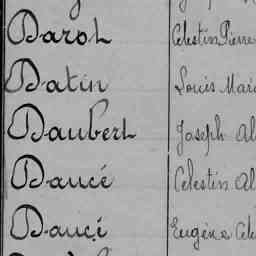 Darot Celestin Pierre
Datin Louis Mari
Daubert Joseph Al
Daucé Celestin Al
Daucé Eugène Cele